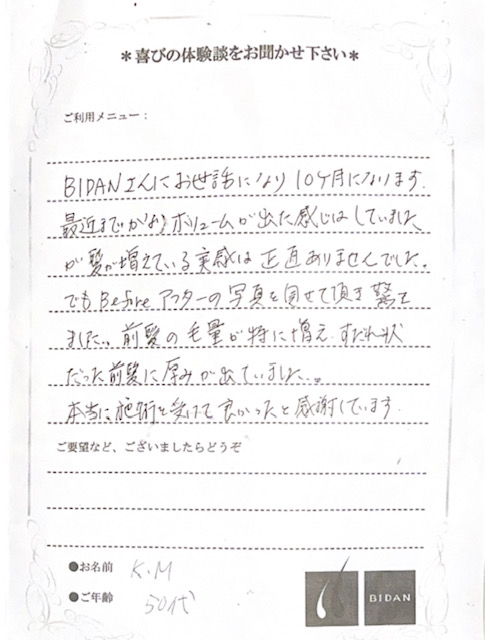 ＊喜びの体験談をお聞かせ下さい＊
ご利用メニュー：
BIDANさんにお世話になり10ヶ月になります。
最近までかなりボリュームが出た感じはしていました
が髪が増えている実感は正直ありませんでした。
でもBeforeアフターの写真を見せて頂き驚き
ました。前髪の毛量が特に増え、すだれ状
だった前髪に厚みが出ていました。
本当に施術を受けて良かったと感謝しています。
ご要望など、ございましたらどうぞ
●お名前 K.M
●ご年齢 50代
BIDAN